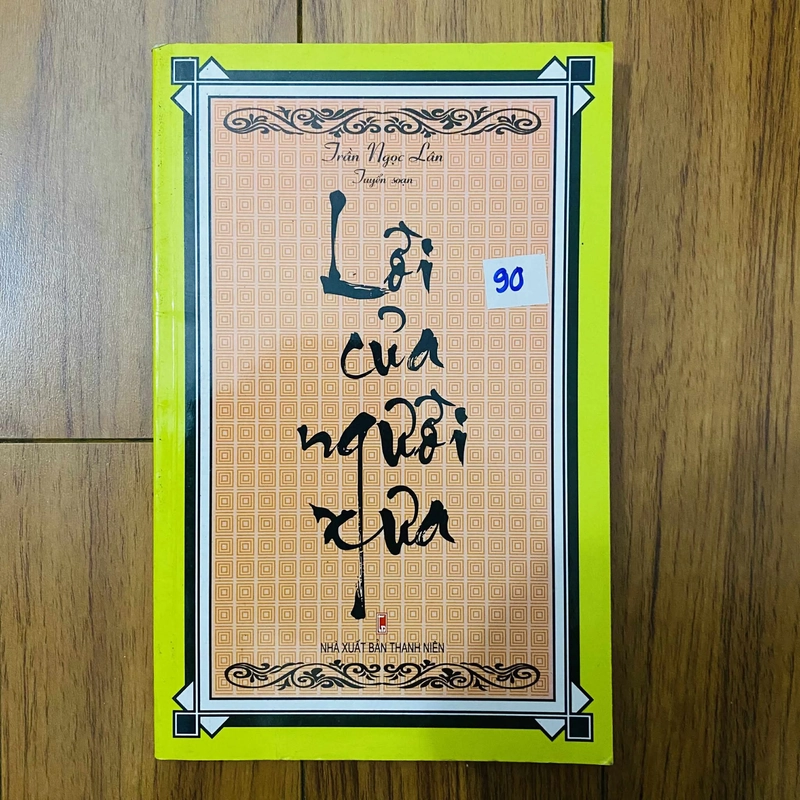 Trần Ngọc Lân
Tuyển soạn
Lời
90
của
người
xưa
NHÀ XUẤT BẢN THANH NIÊN